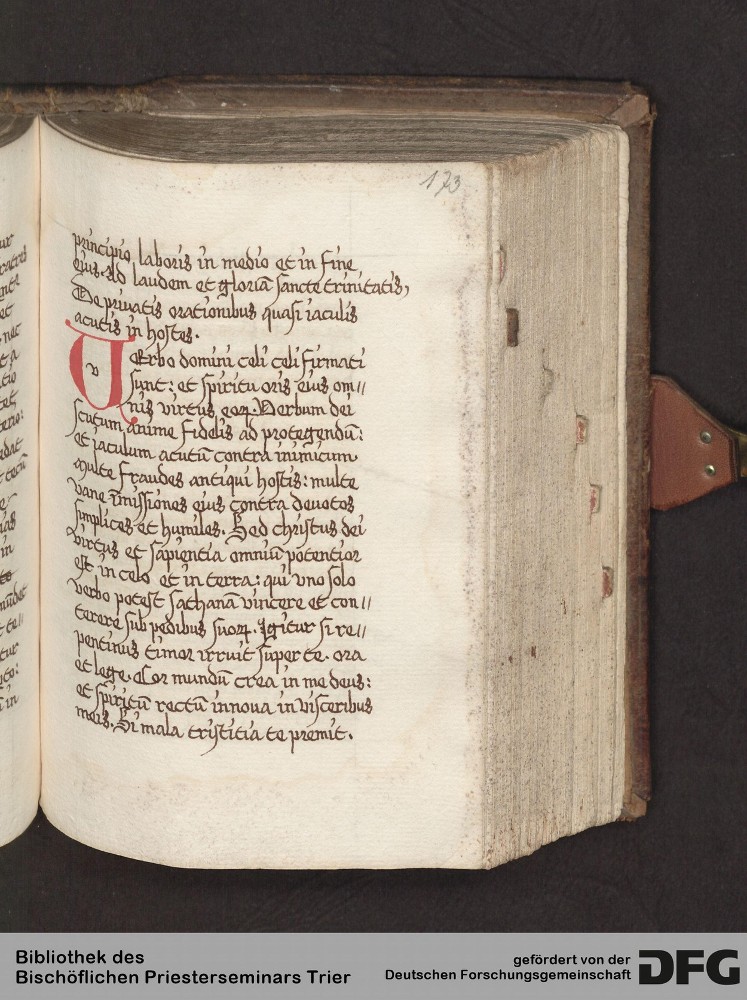 173
principio laboris in medio et in fine
eius. Ad laudem et gloriã sancte trinitatis,
De priuatis orationibus quasi iaculis
acutis in hostes.
VErbo domini celi celi firmati
sunt: et spiritu oris eius om//
nis virtus eoꝝ. Verbum dei
scutum anime fidelis ad protegendũ:
et iaculum acutũ contra inimicum
multe fraudes antiqui hostis: multe
vane ĩmissiones eius contra deuotos
simplices et humiles. Sed christus dei
virtus et sapientia omniũ potentior
est in celo et in terra: qui vno solo
verbo potest sathanã vincere et con//
terere sub pedibus suoꝝ. Igitur si re//
pentinus timor irruit super te. ora
et lege. Cor mundũ crea in me deus:
et spiritũ rectũ innoua in visceribus
meis. Si mala tristitia te premit.
Bibliothek des
Bischöflichen Priesterseminars Trier
gefördert von der
Deutschen Forschungsgemeinschaft
DFG